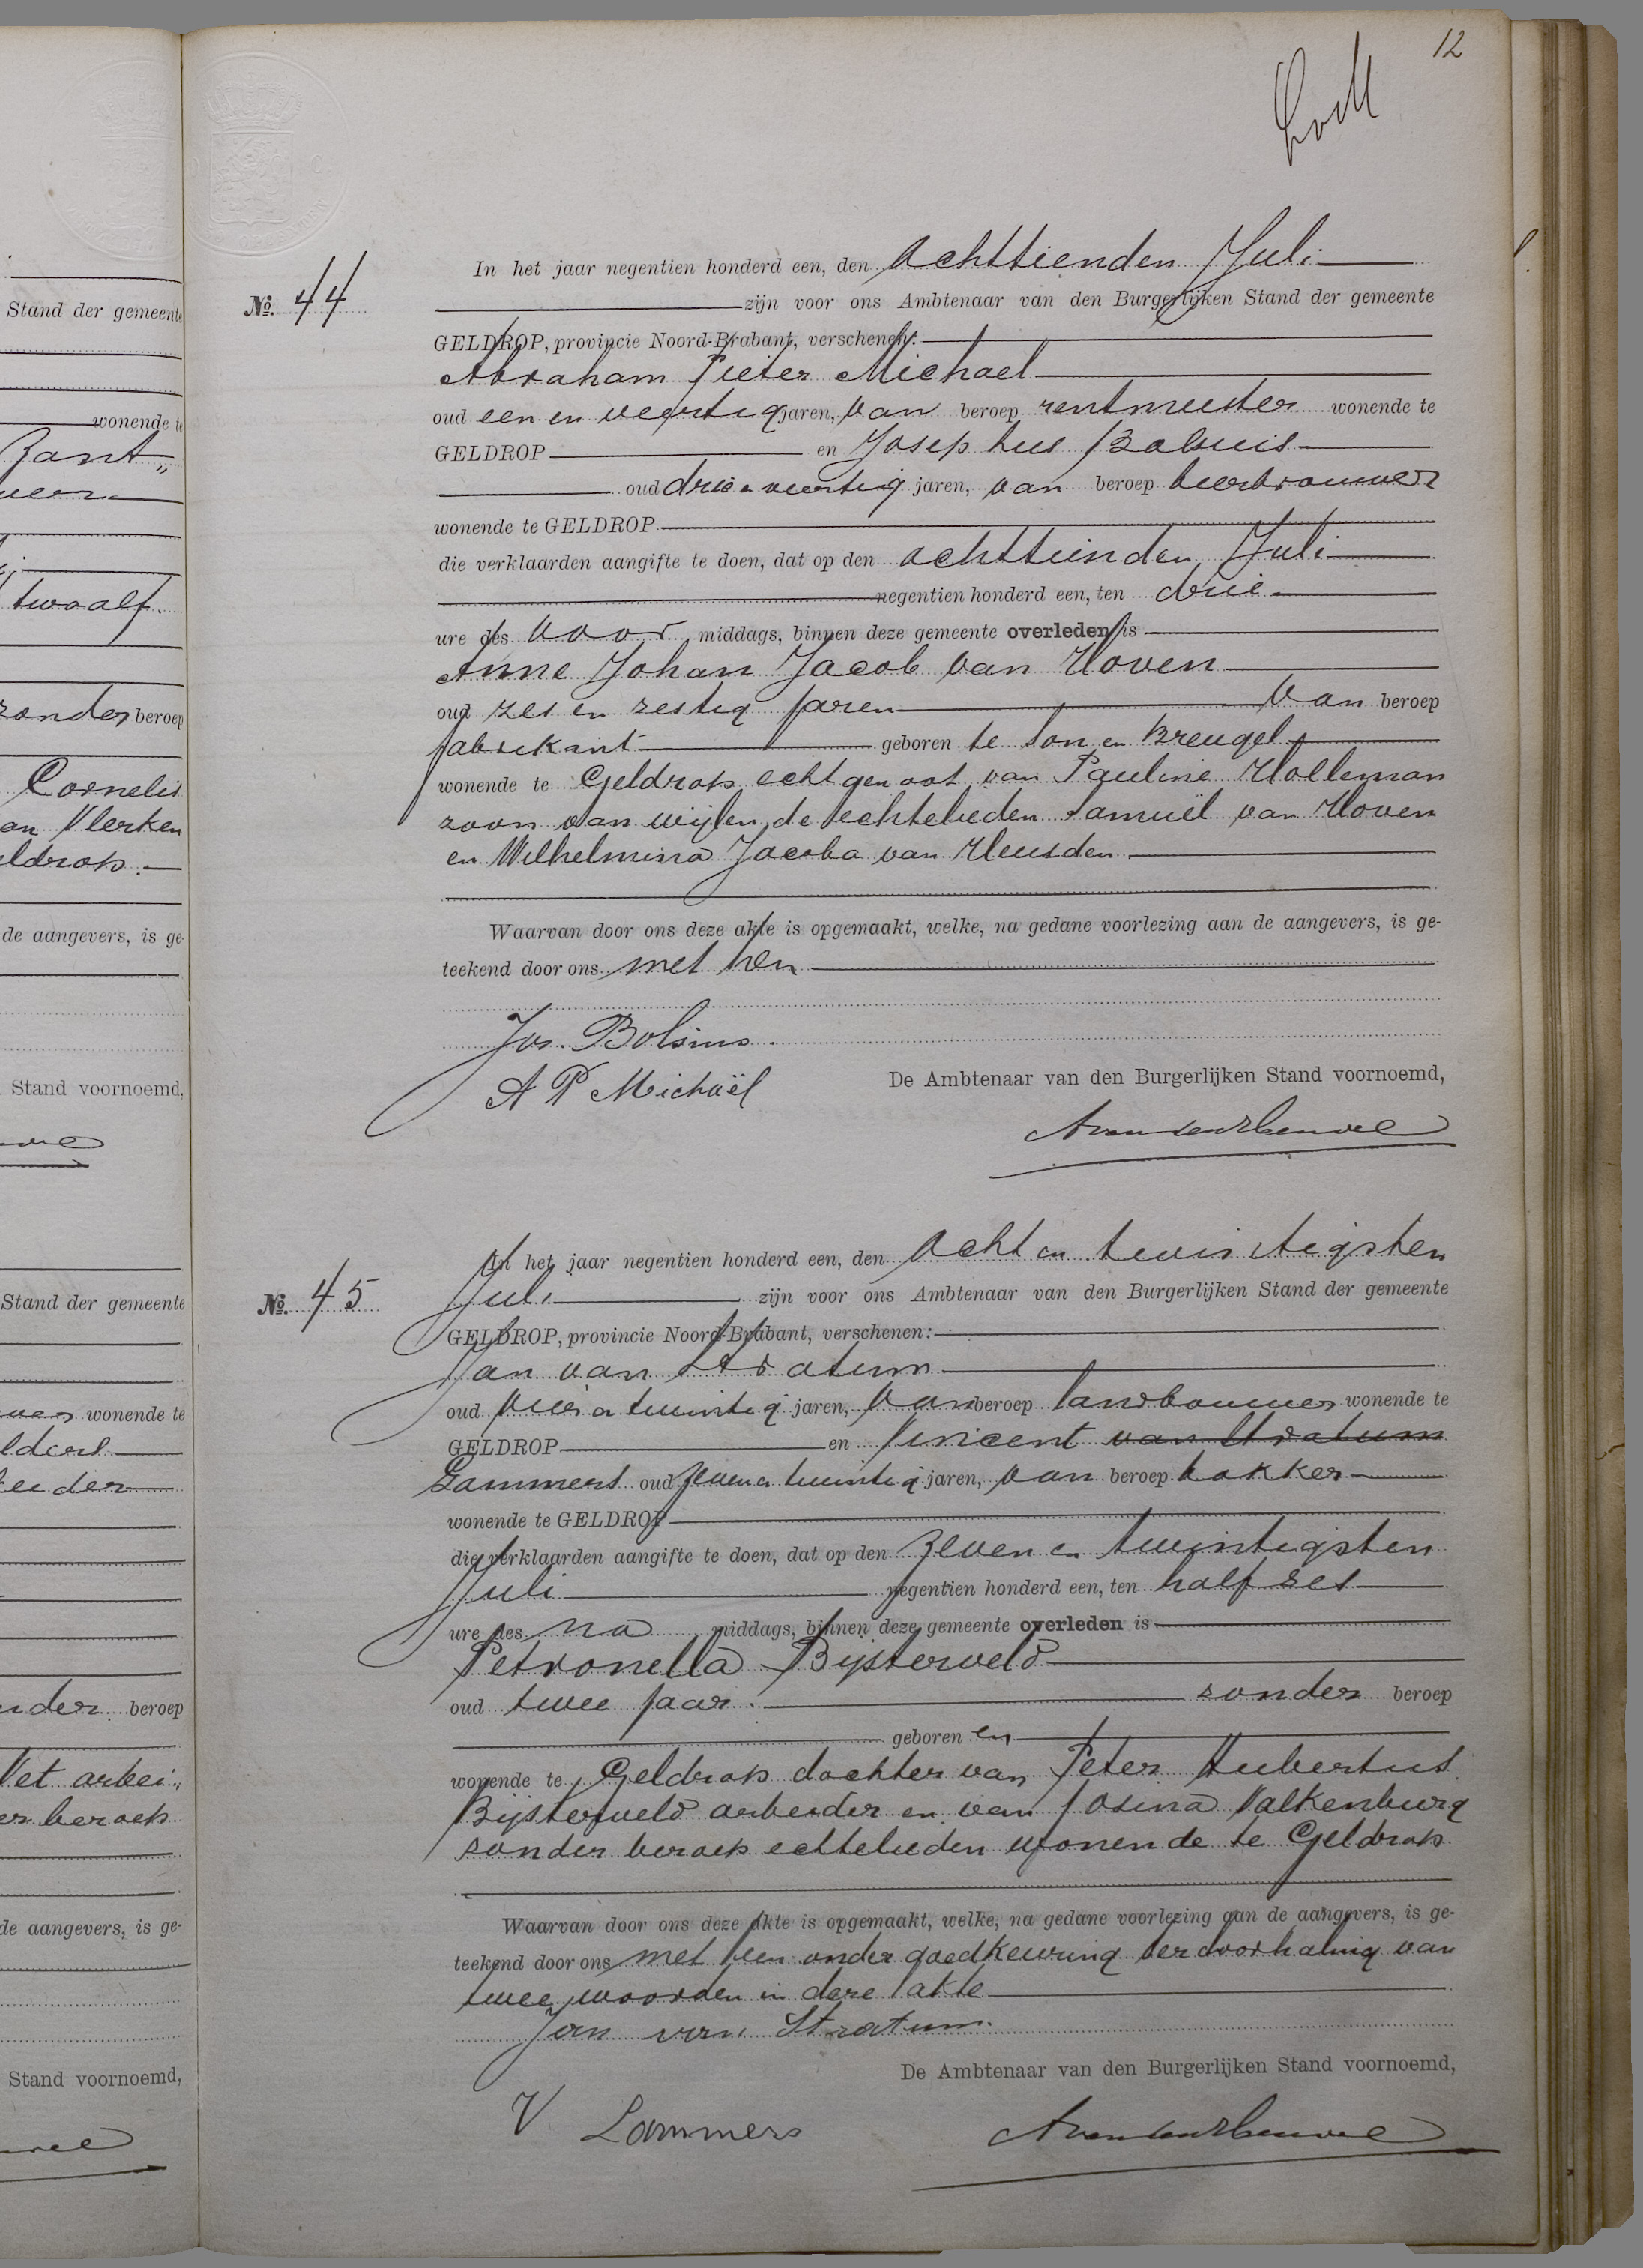 12
In het jaar negentien honderd een, den achttienden Juli
No. 44
zijn voor ons Ambtenaar van den Burgerlijken Stand der gemeente
GELDROP, provincie Noord-Brabant, verschenen:
Abraham Pieter Michael
oud een en veertig jaren, van beroep rentmeester wonende te
GELDROP en Josephus Bolsius
oud drie en veertig jaren, van beroep bierbrouwer
wonende te GELDROP
die verklaarden aangifte te doen, dat op den achttienden Juli
negentien honderd een, ten drie
ure des voor middags, binnen deze gemeente overleden is
Anne Johan Jacob van Hoven
oud zes en zestig jaren van beroep
fabrikant geboren te Son en Breugel
wonende te Geldrop echtgenoot van Pauline Holleman
zoon van wijlen de echtelieden Samuël van Hoven
en Wilhelmina Jacoba van Heusden
Waarvan door ons deze akte is opgemaakt, welke, na gedane voorlezing aan de aangevers, is ge-
teekend door ons met hen
Jos. Bolsius.
A P Michaël
De Ambtenaar van den Burgerlijken Stand voornoemd,
A van den Heuvel
In het jaar negentien honderd een, den acht en twintigsten
No. 45
Juli zijn voor ons Ambtenaar van den Burgerlijken Stand der gemeente
GELDROP, provincie Noord-Brabant, verschenen:
Jan van Stratum
oud vier en twintig jaren, van beroep landbouwer wonende te
GELDROP en Vincent van Stratum
Lammers oud zeven en twintig jaren, van beroep bakker
wonende te GELDROP
die verklaarden aangifte te doen, dat op den zeven en twintigsten
Juli negentien honderd een, ten half zes
ure des na middags, binnen deze gemeente overleden is
Petronella Bijsterveld
oud twee jaar. zonder beroep
geboren en
wonende te Geldrop dochter van Peter Hubertus
Bijsterveld arbeider en van Josina Valkenburg
zonder beroep echtelieden wonende te Geldrop
Waarvan door ons deze akte is opgemaakt, welke, na gedane voorlezing aan de aangevers, is ge-
teekend door ons met hen onder goedkeuring der doorhaling van
twee woorden in deze akte
Jan van Stratum.
De Ambtenaar van den Burgerlijken Stand voornoemd,
V Lammers
A van den Heuvel
Stand der gemeente
wonende te
twaalf.
zonder beroep
Cornelis
de aangevers, is ge-
Stand voornoemd,
Stand der gemeente
wonende te
beroep
de aangevers, is ge-
Stand voornoemd,